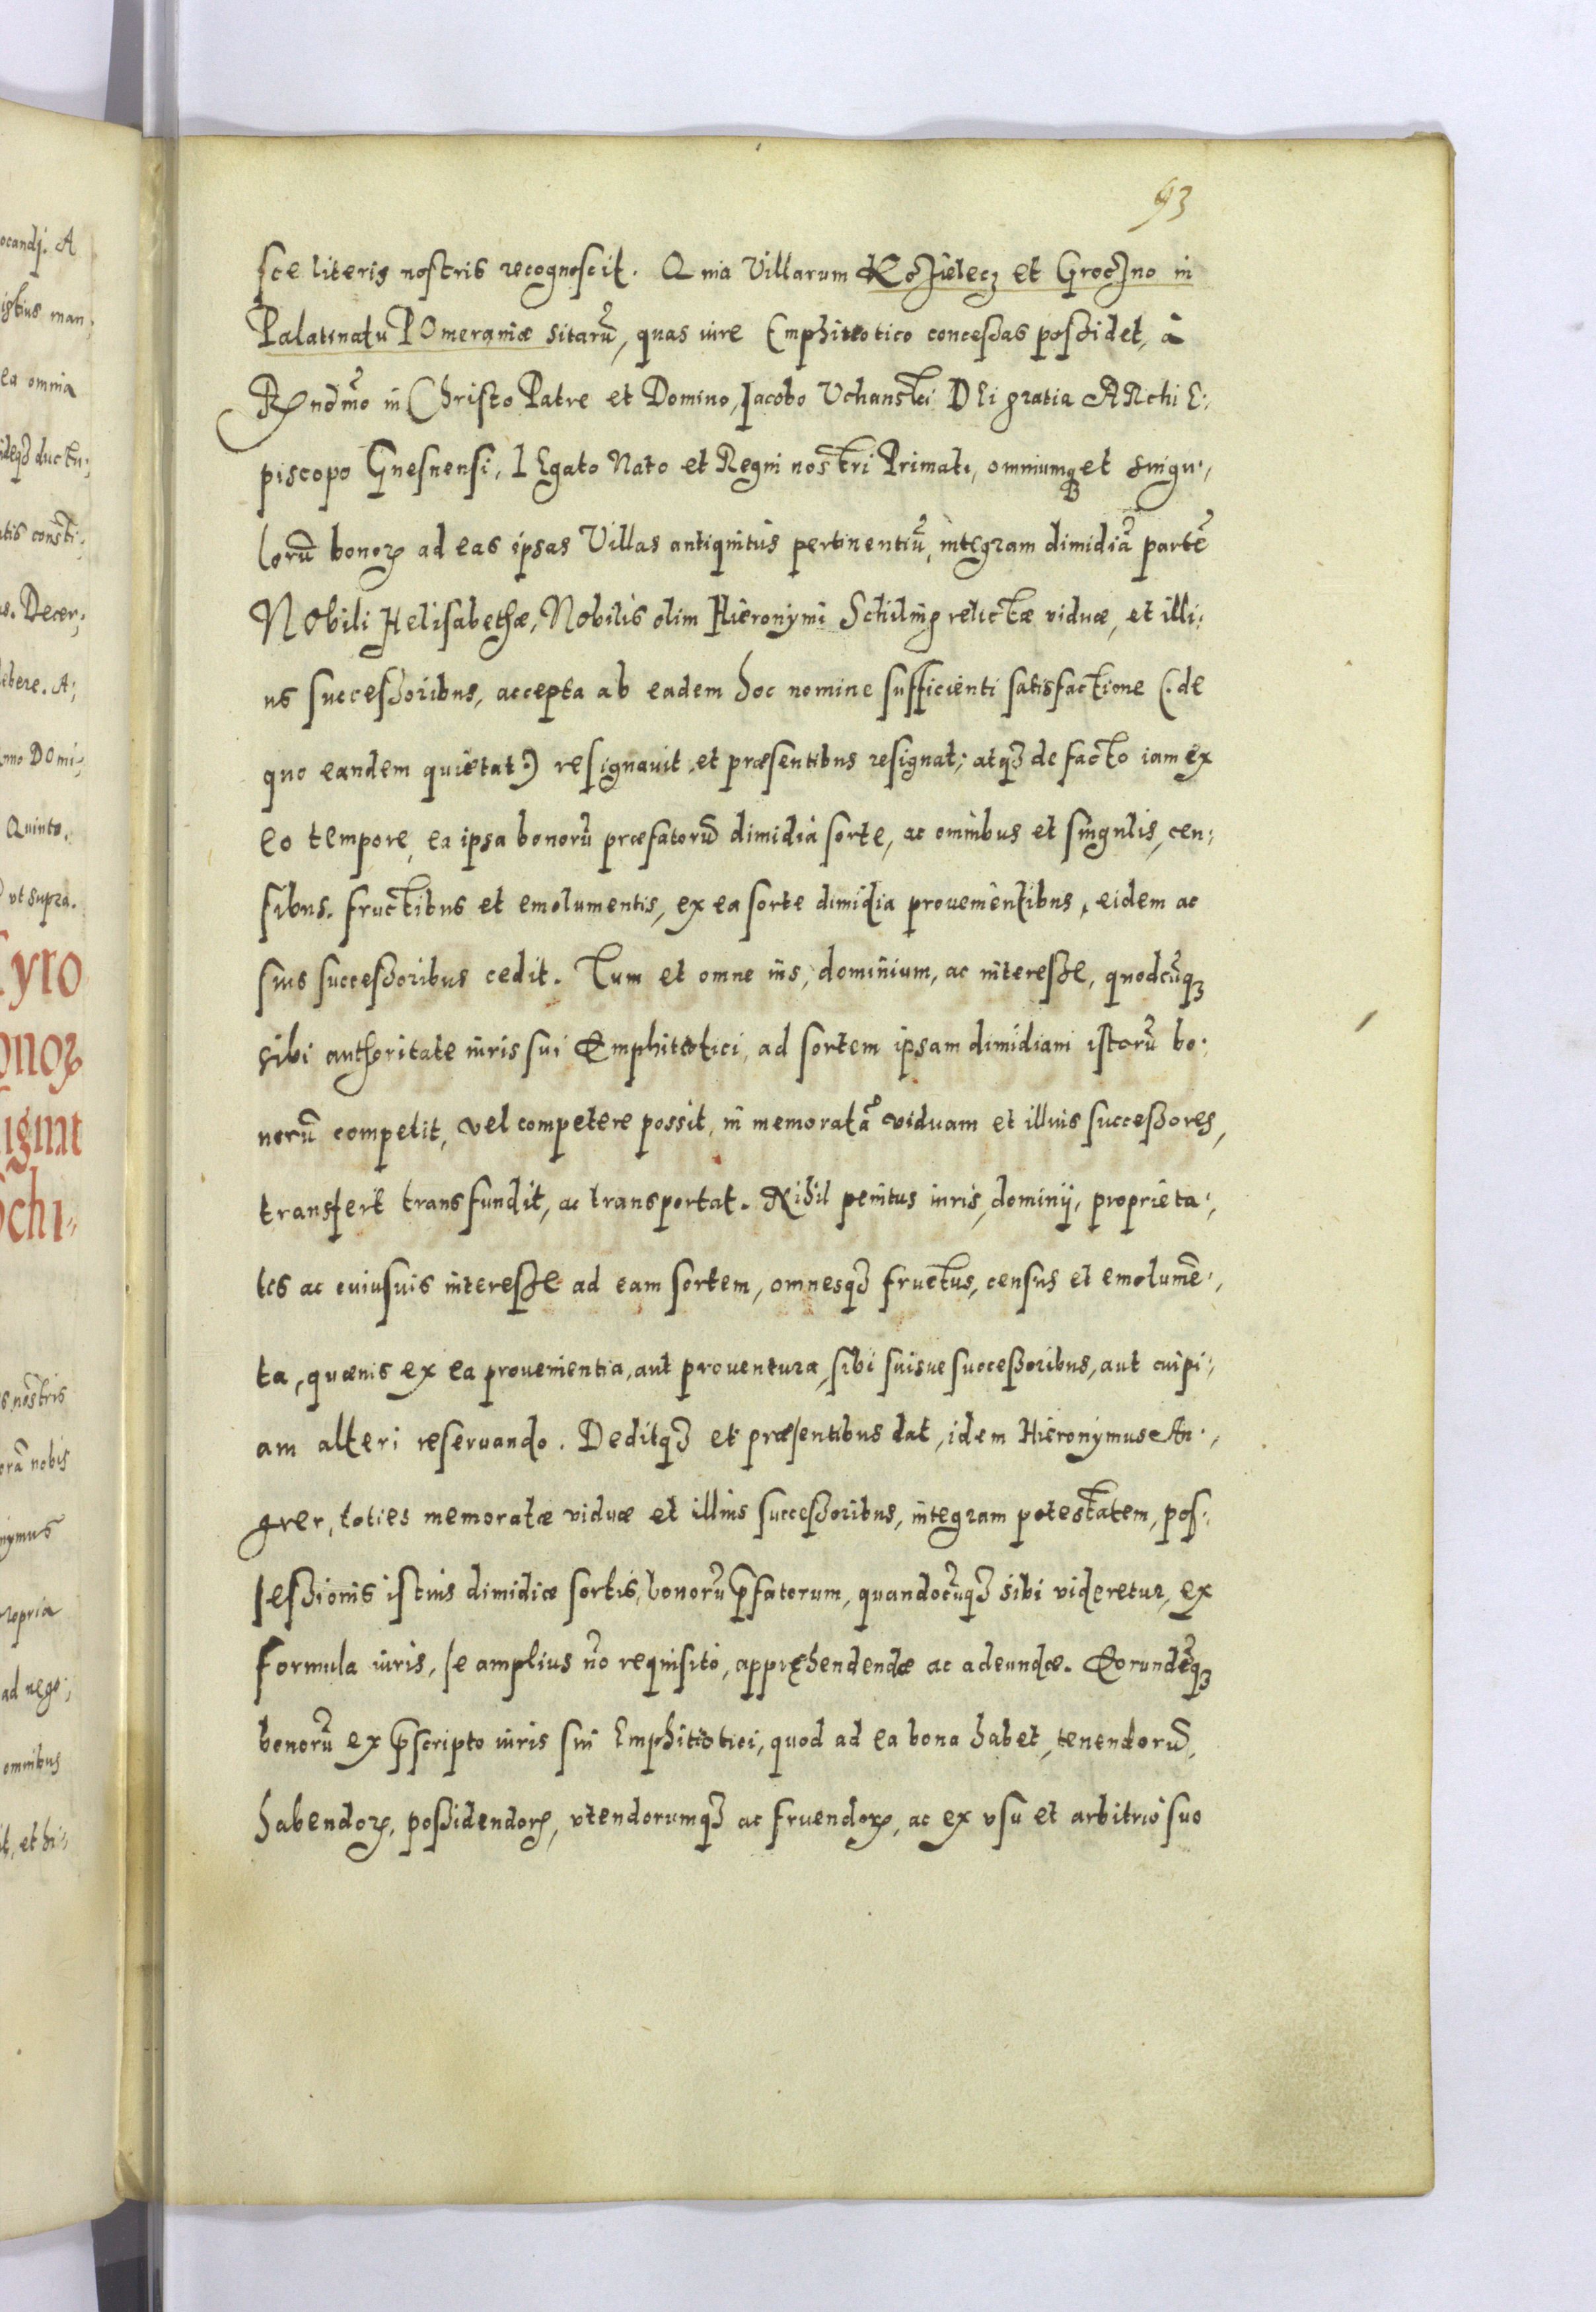 93
sce literis nostris recognoscit. Quia Villarum Kozielecz et Groczno in
Palatinatu POmeraniæ sitarũ, quas iure Emphiteotico conceßas poßidet, à
Rñdmo in Christo Patre et Domino, Iacobo Vchanski DEi gratia ARchi E:,
piscopo Gnesnensi, LEgato Nato et Regni nostri Primate, omniumq et singu:,
lorũ bonoꝝ ad eas ipsas Villas antiquitùs pertinentiũ, integram dimidiã partẽ
NObili Helisabethæ, Nobilis olim Hieronymi Schiling relictæ viduæ, et illi:
us succeßoribus, accepta ab eadem hoc nomine sufficienti satisfactione (:de
quo eandem quietat:) resignauit, et præsentibus resignat; atqꝫ de facto iam ex
eo tempore, ea ipsa bonorũ præfatorũ dimidia sorte, ac omnibus et singulis, cen:
sibus, fructibus et emolumentis, ex ea sorte dimidia prouenientibus, eidem ac
suis succeßoribus cedit. Tum et omne ius, dominium, ac intereße, quodcũqꝫ
sibi authoritate iuris sui Emphiteotici, ad sortem ipsam dimidiam istorũ bo:
norũ competit, vel competere possit, in memoratã viduam et illius succeßores,
transfert transfundit, ac transportat. Nihil penitus iuris, dominij, proprieta:,
tis ac cuiusuis intereße ad eam sortem, omnesqꝫ fructus, census et emolumẽ:,
ta, quæuis ex ea prouenientia, aut prouentura, sibi suisue succeßoribus, aut cuipi:,
am alteri reseruando. Deditqꝫ et præsentibus dat, idem Hieronymus An:,
grer, toties memoratæ viduæ et illius succeßoribus, integram potestatem, pos:
seßionis istius dimidiæ sortis, bonorũ p̃fatorum, quandocũqꝫ sibi videretur, ex
formula iuris, se amplius nõ requisito, apprehendendæ ac adeundæ. Eorundẽqꝫ
bonorũ ex p̃scripto iuris sui Emphiteotici, quod ad ea bona habet, tenendorũ,
habendoꝝ, poßidendoꝝ, vtendorumqꝫ ac fruendoꝝ, ac ex vsu et arbitrio suo